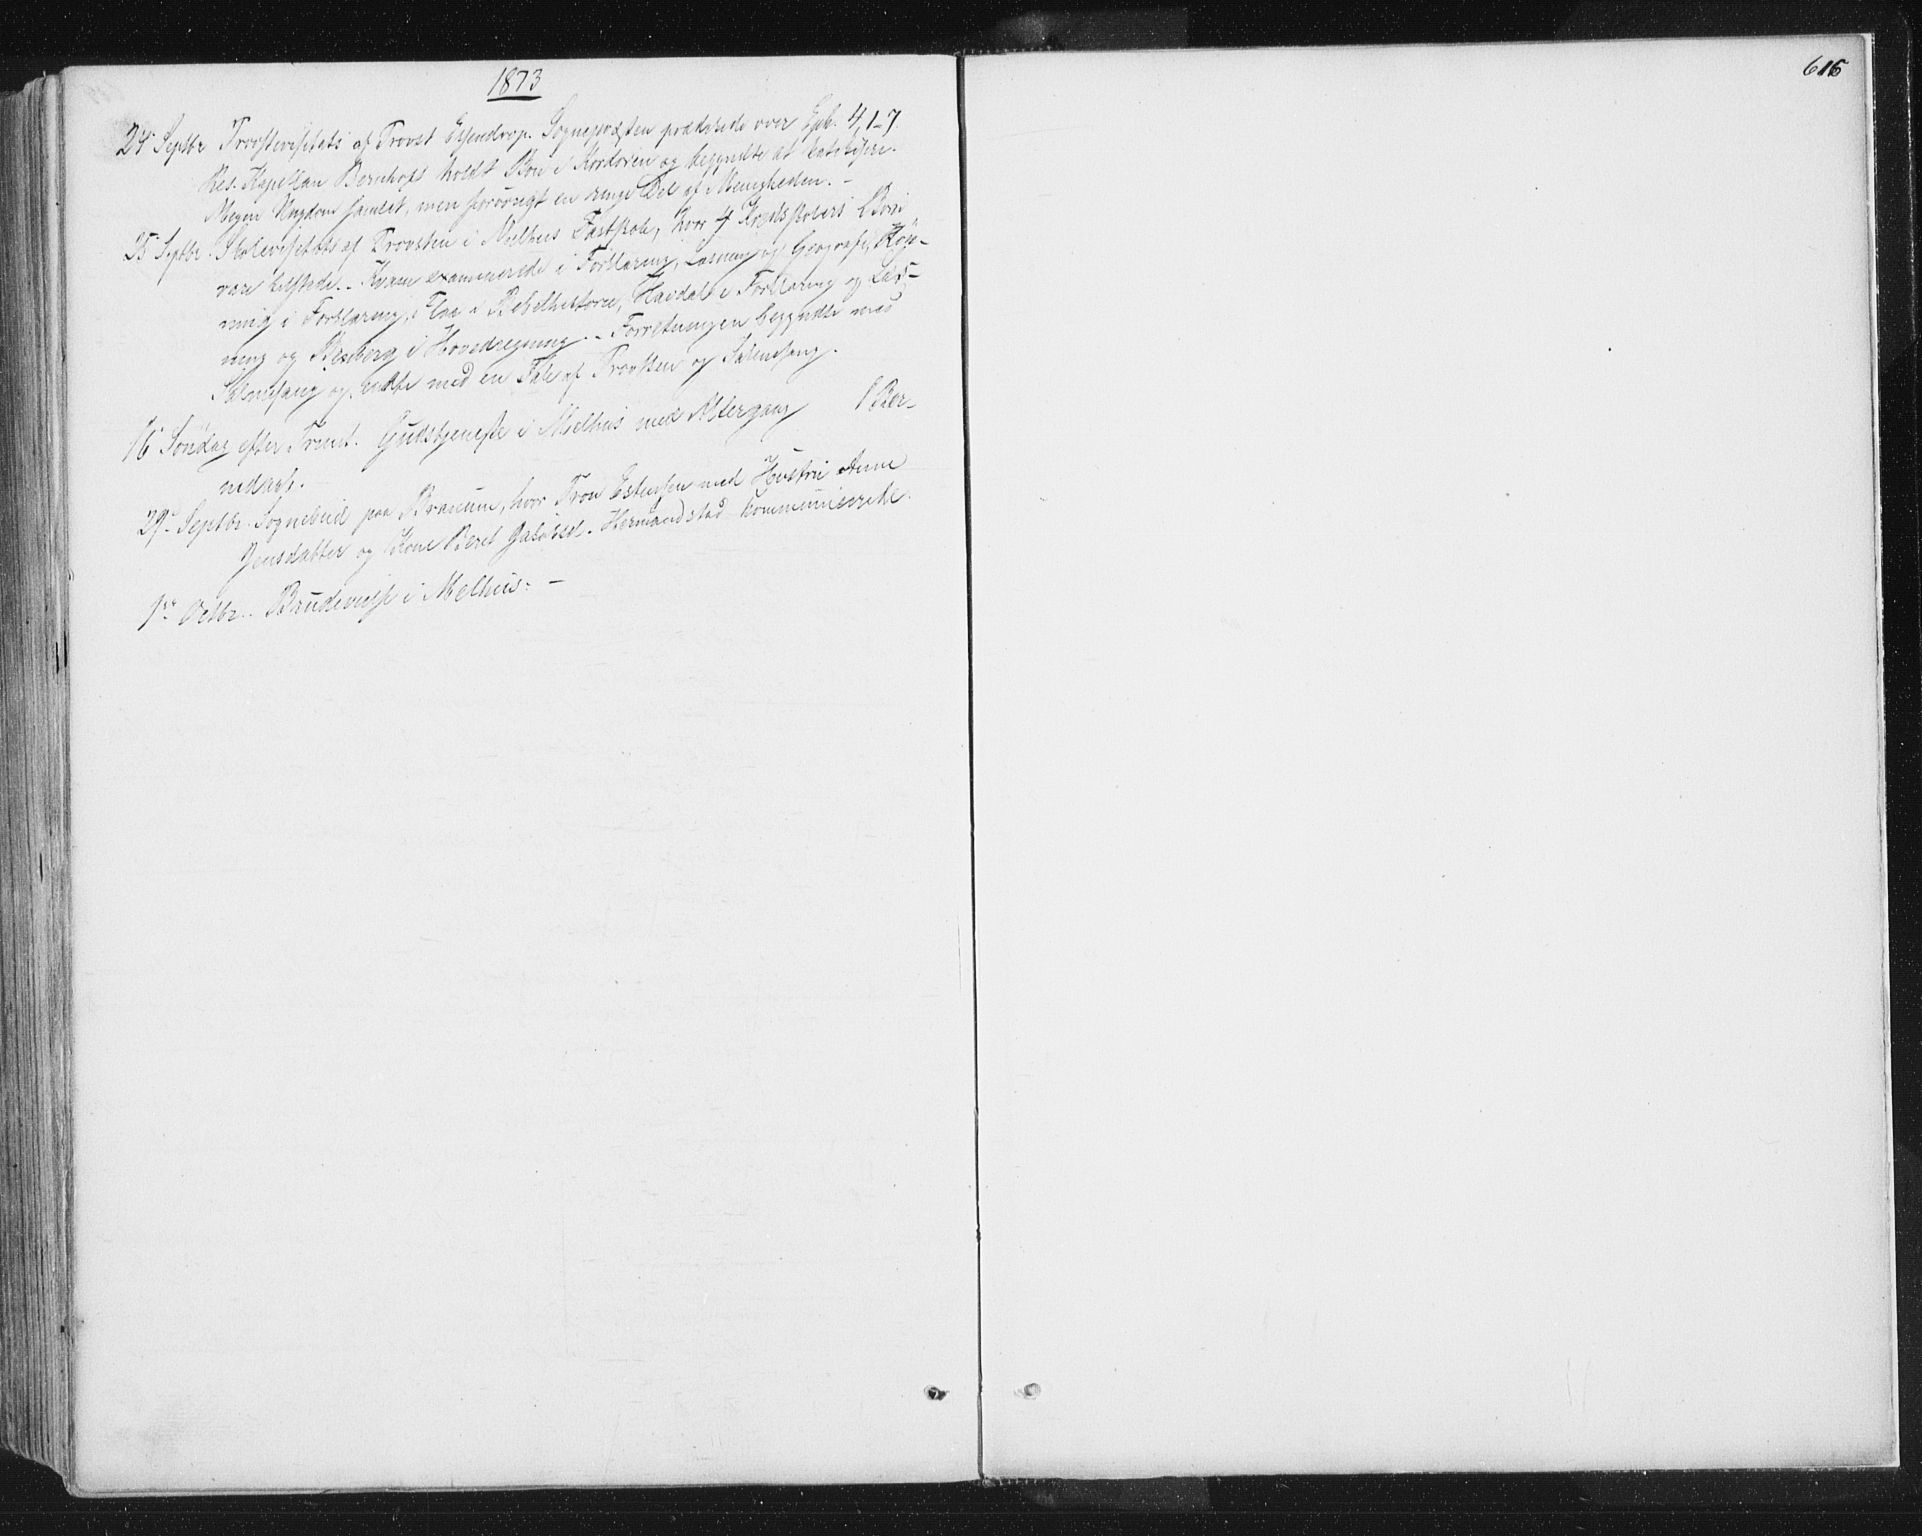 616
1873
24 Septbr Provstevisitats af Provst Essendrop. Sognepræsten prækede over Eph. 4, 1-7.
Res. Kapellan Bernhoft holdt Bøn i Kordøren og begyndte at katekisere.
Megen Ungdom samlet, men forøvrigt en ringe Del af Menigheden. –
25 Septbr. Skolevisitats af Provsten i Melhus Fastskole, hvor 4 Kredsskolers Børn
vare tilstede. – Kvam examinerede i Forklaring, Læsning og Geografi,
ning i Forklaring, i Bibelhistorie, Havdal i Forklaring og Læs-
ning og Resberg i Hovedregning. – Forretningen begyndte med
Salmesang og endte med en Tale af Provsten og Salmesang.
16 Søndag efter Trinit. Gudstjeneste i Melhus med Altergang 1 Ber-
nedaab.
29 Septbr. Sognebud paa Braaum, hvor Tron Estensen med Hustru Anne
Jensdatter og Kone Beret Hermandstad kommunicerede.
1ste Octbr. Brudevielse i Melhus. –